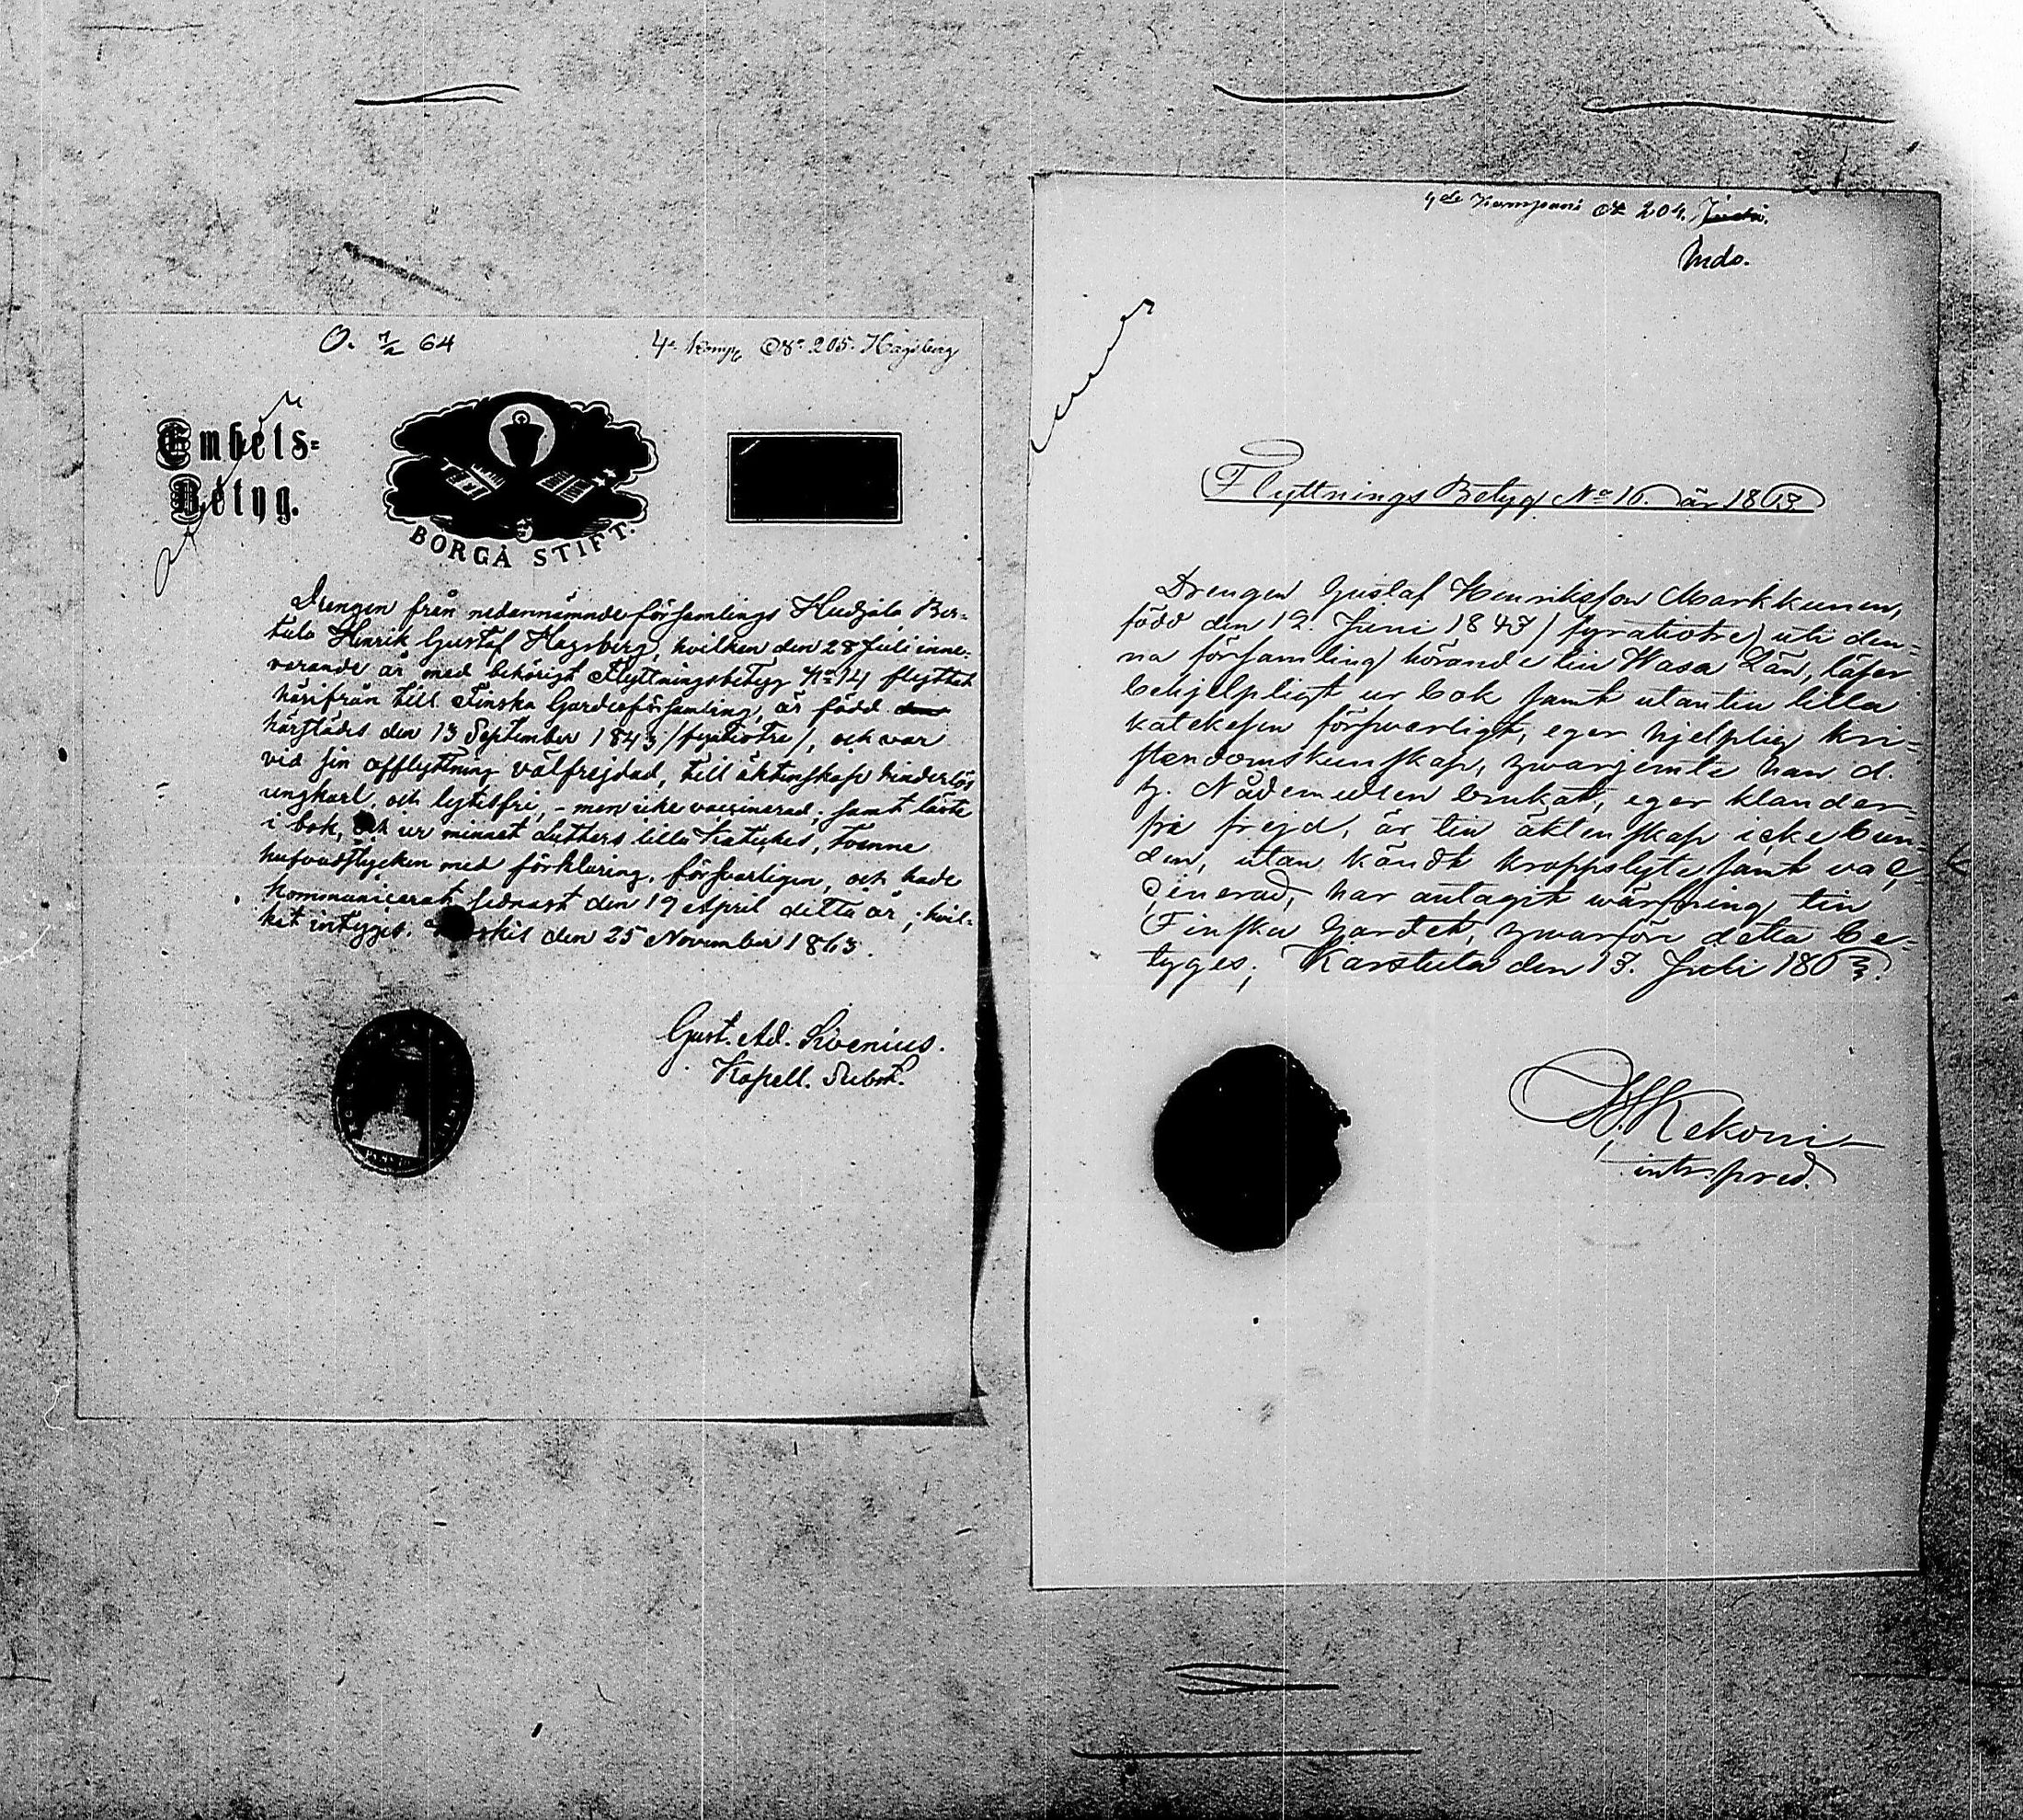 O. 7/2 64
4e Komp No 205. Hagsberg
Embets-
Betyg.
BORGÅ STIFT.
Drengen från nedannämnde församlings Hudjala, Ber-
tula Henrik Gustaf Hagsberg, hvilken den 28 Juli inne-
varande år med behörigt Flyttningsbetyg No 14 flyttat
härifrån till Finska Gardesförsamling, är född den
härstädes den 13 September 1843 /fyratiotre/, och var
vid sin afflyttning välfrejdad, till äktenskap hinderlös
ungkarl, och lytesfri, - men icke vaccinerad; samt läste
i bok, och ur minnet Luthers lilla Katekes, tvenne
hufvudstycken med förklaring, försvarligen, och hade
kommunicerat sednast den 19 April detta år; hvil-
ket intygis. den 25 November 1863.
Gust. Ad. Sivenius.
Kapell. Subst.
4de Kompani No 204.
Indo.
Flyttnings Betyg No 16. år 1863
Drengen Gustaf Henriksson Markkunen,
född den 12. Juni 1843 /fyratiotre/ uti den-
na församling hörande till Wasa Län, läser
behjelpligt ur bok samt utantill lilla
katekesen försvarligt, eger hjelplig kri-
stendomskunskap, hvarjemte han d.
h. Nådemedlen brukat, eger klander-
fri frejd, är till äktenskap icke bun-
den, utan kändt kroppslyte samt vac-
cinerad, har antagit wärfning till
Finska Gardet, hvarföre detta be-
tyges; Karstula den 13. Juli 1863.
Kekoni
intr. pred.